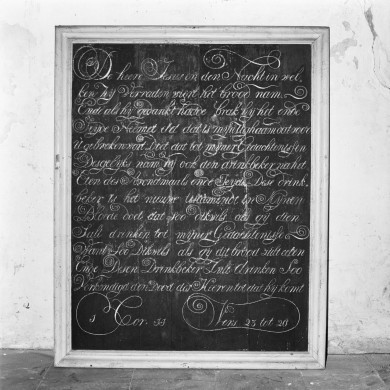 De heere Jesus in den Nacht in wel
ken hij verraden wiert het brood nam
Ende als hij gedankt hadde brak hij het ende
Seyde Neemet etd dat is mijn lighaam at voor
U gebroken wort Doet dat tot mijner Gedachtenissen
Desgelijks nam hij ook den drinkbeker na het
Eten des Avondmaals ende Seyde Dese drink
beker is het nieuwe testament in Mijnen
Bloede doet dat soo dikwils als gij dien
Sult drinken tot mijner Gedachtenisse
Want Soo Dikwils als gij dit brood sult eten
Ende Desen Drinkbeker Sult drinken Soo
Verkondigd den dood des Heeren tot dat hij komt
1 Cor. 11 Vers 23 tot 26